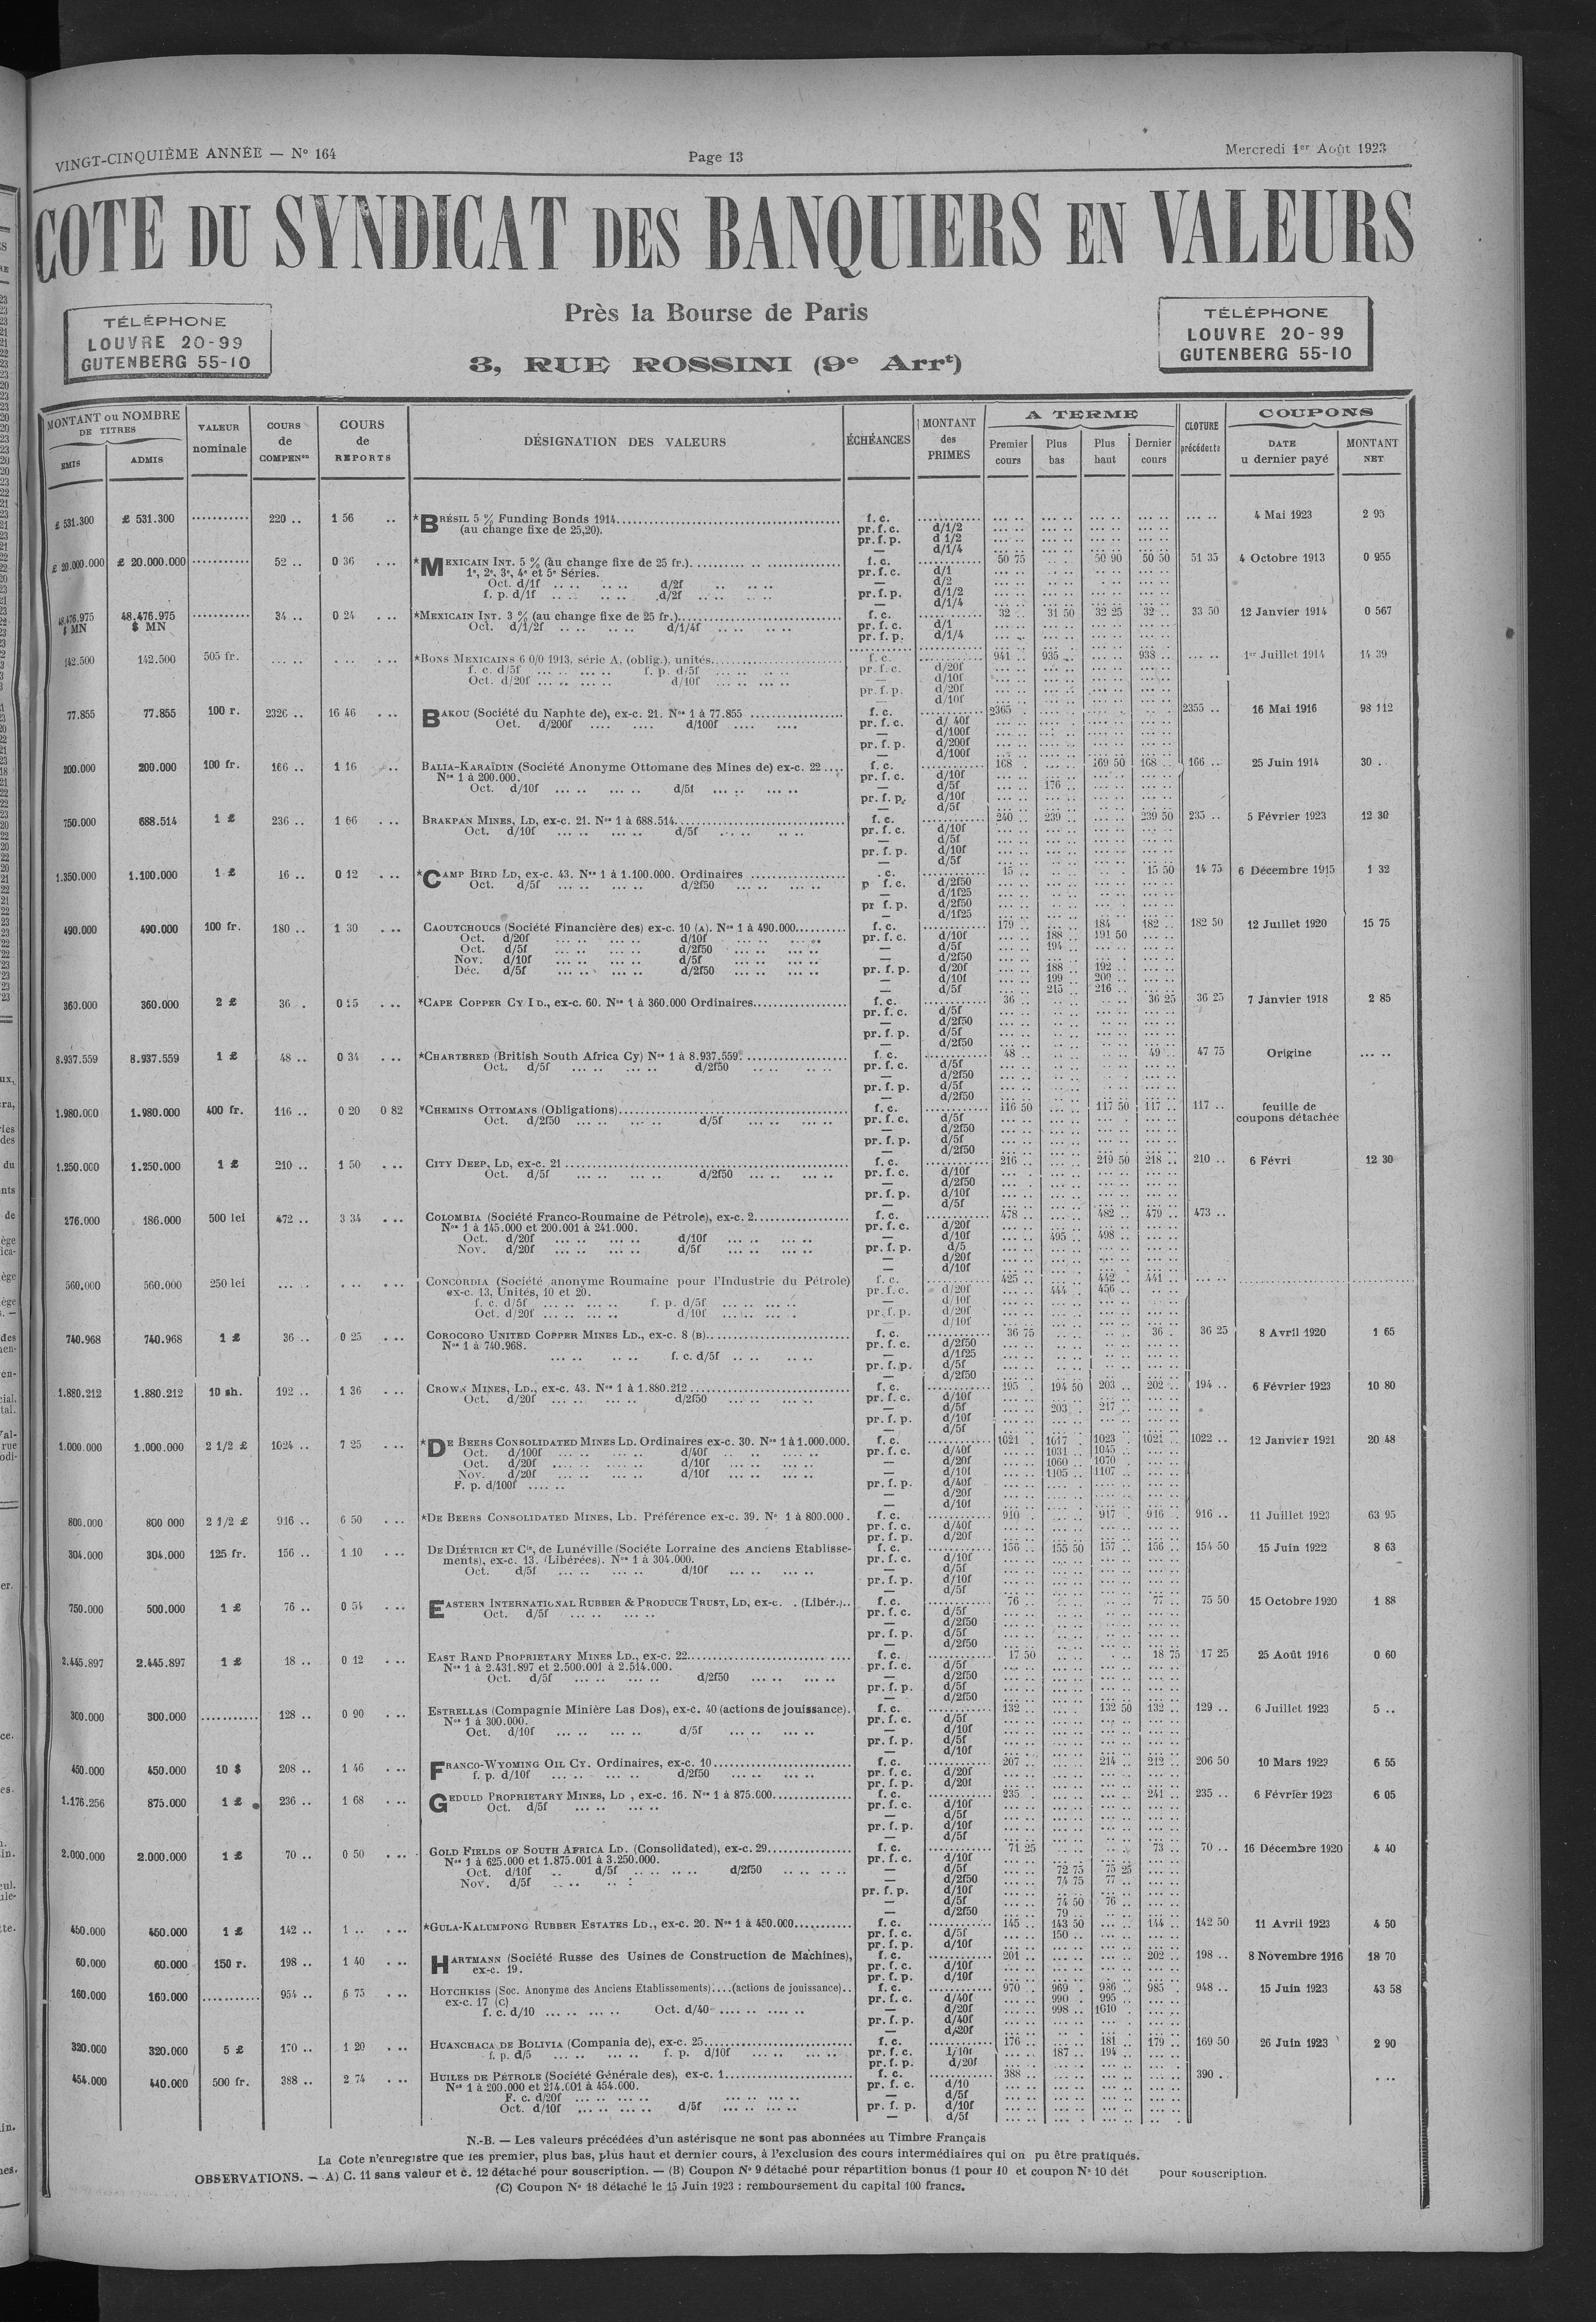 VINGT-CINQUIÈME ANNÉE — N° 164
Page 13
Mercredi 1er Août 1923
COTE DU SYNDICAT DES BANQUIERS EN VALEURS
Près la Bourse de Paris
3, RUE ROSSINI (9e Arrt)
TÉLÉPHONE
LOUVRE 20-99
GUTENBERG 55-10
TÉLÉPHONE
LOUVRE 20-99
GUTENBERG 55-10
MONTANT ou NOMBRE DE TITRES
ÉMIS ADMIS
VALEUR nominale
COURS de COMPENon
COURS de REPORTS
DÉSIGNATION DES VALEURS
ÉCHÉANCES
MONTANT des PRIMES
A TERME
Premier cours Plus bas Plus haut Dernier cours
CLOTURE précédente
COUPONS
DATE u dernier payé MONTANT NET
£ 531.300 £ 531.300 220 .. 1 56 .. *BRÉSIL 5 % Funding Bonds 1914 f. c. 4 Mai 1923 2 95
(au change fixe de 25,20). pr. f. c. d/1/2
pr. f. p. d 1/2
— d/1/4
£ 20.000.000 £ 20.000.000 52 .. 0 36 *MEXICAIN INT. 5 % (au change fixe de 25 fr.) f. c. 50 75 50 90 50 50 51 35 4 Octobre 1913 0 955
1e, 2e, 3e, 4e et 5e Séries. pr. f. c. d/1
Oct. d/1f d/2f — d/2
f. p. d/1f d/2f pr. f. p. d/1/2
— d/1/4
48.476.975 $ MN 48.476.975 $ MN 34 .. 0 24 *MEXICAIN INT. 3 % (au change fixe de 25 fr.) f. c. 32 .. 31 50 32 25 32 .. 33 50 12 Janvier 1914 0 567
Oct. d/1/2f d/1/4f pr. f. c. d/1
pr. f. p. d/1/4
142.500 142.500 505 fr. *BONS MEXICAINS 6 0/0 1913, série A, (oblig.), unités f. c. 941 .. 935 .. 938 .. 1er Juillet 1914 14 39
f. c. d/5f f. p. d/5f pr. f. c. d/20f
Oct. d/20f d/10f — d/10f
pr. f. p. d/20f
— d/10f
77.855 77.855 100 r. 2326 .. 16 46 BAKOU (Société du Naphte de), ex-c. 21. Nos 1 à 77.855 f. c. 2365 2355 .. 16 Mai 1916 98 112
Oct. d/200f d/100f pr. f. c. d/ 40f
— d/100f
pr. f. p. d/200f
— d/100f
200.000 200.000 100 fr. 166 .. 1 16 BALIA-KARAÏDIN (Société Anonyme Ottomane des Mines de) ex-c. 22 f. c. 168 169 50 168 .. 166 .. 25 Juin 1914 30 ..
Nos 1 à 200.000. pr. f. c. d/10f
Oct. d/10f d/5f — d/5f 176 ..
pr. f. p. d/10f
— d/5f
750.000 688.514 1 £ 236 .. 1 66 BRAKPAN MINES, LD, ex-c. 21. Nos 1 à 688.514 f. c. 240 .. 239 .. 239 50 235 .. 5 Février 1923 12 30
Oct. d/10f d/5f pr. f. c. d/10f
— d/5f
pr. f. p. d/10f
— d/5f
1.350.000 1.100.000 1 £ 16 .. 0 12 *CAMP BIRD LD, ex-c. 43. Nos 1 à 1.100.000. Ordinaires . c. 15 .. 15 50 14 75 6 Décembre 1915 1 32
Oct. d/5f d/2f50 p f. c. d/2f50
— d/1f25
pr f. p. d/2f50
— d/1f25
490.000 490.000 100 fr. 180 .. 1 30 CAOUTCHOUCS (Société Financière des) ex-c. 10 (A). Nos 1 à 490.000 f. c. 179 .. 184 182 .. 182 50 12 Juillet 1920 15 75
Oct. d/20f d/10f pr. f. c. d/10f 188 .. 191 50
Oct. d/5f d/2f50 — d/5f 194 ..
Nov. d/10f d/5f — d/2f50
Déc. d/5f d/2f50 pr. f. p. d/20f 188 .. 192 ..
— d/10f 199 .. 200 ..
— d/5f 215 .. 216 ..
360.000 360.000 2 £ 36 . 0 25 *CAPE COPPER CY LD., ex-c. 60. Nos 1 à 360.000 Ordinaires f. c. 36 .. 36 25 36 25 7 Janvier 1918 2 85
pr. f. c. d/5f
— d/2f50
pr. f. p. d/5f
— d/2f50
8.937.559 8.937.559 1 £ 48 .. 0 34 *CHARTERED (British South Africa Cy) Nos 1 à 8.937.559. f. c. 48 .. 49 .. 47 75 Origine
Oct. d/5f d/2f50 pr. f. c. d/5f
— d/2f50
pr. f. p. d/5f
— d/2f50
1.980.000 1.980.000 400 fr. 116 .. 0 20 0 82 *CHEMINS OTTOMANS (Obligations) f. c. 116 50 117 50 117 .. 117 .. feuille de coupons détachée
Oct. d/2f50 d/5f pr. f. c. d/5f
— d/2f50
pr. f. p. d/5f
— d/2f50
1.250.000 1.250.000 1 £ 210 .. 1 50 CITY DEEP, LD, ex-c. 21 f. c. 216 .. 219 50 218 .. 210 .. 6 Févri 12 30
Oct. d/5f d/2f50 pr. f. c. d/10f
— d/2f50
pr. f. p. d/10f
— d/5f
276.000 186.000 500 lei 472 .. 3 34 COLOMBIA (Société Franco-Roumaine de Pétrole), ex-c. 2 f. c. 478 .. 482 .. 479 .. 473 ..
Nos 1 à 145.000 et 200.001 à 241.000. pr. f. c. d/20f
Oct. d/20f d/10f — d/10f 495 .. 498 ..
Nov. d/20f d/5f pr. f. p. d/5
— d/20f
— d/10f
560.000 560.000 250 lei CONCORDIA (Société anonyme Roumaine pour l'Industrie du Pétrole) f. c. 425 .. 442 .. 441 ..
ex-c. 13, Unités, 10 et 20. pr. f. c. d/20f 444 .. 456 ..
f. c. d/5f f. p. d/5f — d/10f
Oct. d/20f d/10f pr. f. p. d/20f
— d/10f
740.968 740.968 1 £ 36 .. 0 25 COROCORO UNITED COPPER MINES LD., ex-c. 8 (B) f. c. 36 75 36 . 36 25 8 Avril 1920 1 65
Nos 1 à 740.968. pr. f. c. d/2f50
f. c. d/5f — d/1f25
pr. f. p. d/5f
— d/2f50
1.880.212 1.880.212 10 sh. 192 .. 1 36 CROWN MINES, LD., ex-c. 43. Nos 1 à 1.880.212 f. c. 195 . 194 50 203 .. 202 .. 194 .. 6 Février 1923 10 80
Oct. d/20f d/2f50 pr. f. c. d/10f
— d/5f 203 . 217 ..
pr. f. p. d/10f
— d/5f
1.000.000 1.000.000 2 1/2 £ 1024 .. 7 25 *DE BEERS CONSOLIDATED MINES LD. Ordinaires ex-c. 30. Nos 1 à 1.000.000. f. c. 1021 . 1017 .. 1023 .. 1021 .. 1022 .. 12 Janvier 1921 20 48
Oct. d/100f d/40f pr. f. c. d/40f 1031 .. 1045 ..
Oct. d/20f d/10f — d/20f 1060 .. 1070 ..
Nov. d/20f d/10f — d/10f 1105 .. 1107 ..
F. p. d/100f pr. f. p. d/40f
— d/20f
— d/10f
800.000 800 000 2 1/2 £ 916 .. 6 50 *DE BEERS CONSOLIDATED MINES, LD. Préférence ex-c. 39. No 1 à 800.000 . f. c. 910 .. 917 .. 916 .. 916 .. 11 Juillet 1923 63 95
pr. f. c. d/40f
pr. f. p. d/20f
304.000 304.000 125 fr. 156 .. 1 10 DE DIÉTRICH ET Cie, de Lunéville (Société Lorraine des Anciens Etablisse- f. c. 156 .. 155 50 157 .. 156 .. 154 50 15 Juin 1922 8 63
ments), ex-c. 13. (Libérées). Nos 1 à 304.000. pr. f. c. d/10f
Oct. d/5f d/10f — d/5f
pr. f. p. d/10f
— d/5f
750.000 500.000 1 £ 76 .. 0 54 EASTERN INTERNATIONAL RUBBER & PRODUCE TRUST, LD, ex-c. . (Libér.) f. c. 76 .. 77 .. 75 50 15 Octobre 1920 1 88
Oct. d/5f pr. f. c. d/5f
— d/2f50
pr. f. p. d/5f
— d/2f50
2.445.897 2.445.897 1 £ 18 .. 0 12 EAST RAND PROPRIETARY MINES LD., ex-c. 22 f. c. 17 50 18 75 17 25 25 Août 1916 0 60
Nos 1 à 2.431.897 et 2.500.001 à 2.514.000. pr. f. c. d/5f
Oct. d/5f d/2f50 — d/2f50
pr. f. p. d/5f
— d/2f50
300.000 300.000 128 .. 0 90 ESTRELLAS (Compagnie Minière Las Dos), ex-c. 40 (actions de jouissance). f. c. 132 .. 132 50 132 .. 129 .. 6 Juillet 1923 5 ..
Nos 1 à 300.000. pr. f. c. d/5f
Oct. d/10f d/5f — d/10f
pr. f. p. d/5f
— d/10f
450.000 450.000 10 $ 208 .. 1 46 FRANCO-WYOMING OIL CY. Ordinaires, ex-c. 10 f. c. 207 . 214 .. 212 .. 206 50 10 Mars 1923 6 55
f. p. d/10f d/2f50 pr. f. c. d/20f
pr. f. p. d/20f
1.176.256 875.000 1 £ 236 .. 1 68 GEDULD PROPRIETARY MINES, LD , ex-c. 16. Nos 1 à 875.000 f. c. 235 241 .. 235 .. 6 Février 1923 6 05
Oct. d/5f pr. f. c. d/10f
— d/5f
pr. f. p. d/10f
— d/5f
2.000.000 2.000.000 1 £ 70 .. 0 50 GOLD FIELDS OF SOUTH AFRICA LD. (Consolidated), ex-c. 29 f. c. 71 25 73 .. 70 .. 16 Décembre 1920 4 40
Nos 1 à 625.000 et 1.875.001 à 3.250.000. pr. f. c. d/10f
Oct. d/10f d/5f d/2f50 — d/5f 72 75 75 25
Nov. d/5f — d/2f50 74 75 77 ..
pr. f. p. d/10f
— d/5f 74 50 76 ..
— d/2f50 79 ..
450.000 450.000 1 £ 142 .. 1 .. *GULA-KALUMPONG RUBBER ESTATES LD., ex-c. 20. Nos 1 à 450.000 f. c. 145 .. 143 50 144 .. 142 50 11 Avril 1923 4 50
pr. f. c. d/5f 150 ..
pr. f. p. d/10f
60.000 60.000 150 r. 198 .. 1 40 HARTMANN (Société Russe des Usines de Construction de Machines), f. c. 201 .. 202 .. 198 .. 8 Novembre 1916 18 70
ex-c. 19. pr. f. c. d/10f
pr. f. p. d/10f
160.000 160.000 954 .. 6 75 HOTCHKISS (Soc. Anonyme des Anciens Etablissements) (actions de jouissance) f. c. 970 . 969 .. 986 .. 985 . 948 .. 15 Juin 1923 43 58
ex-c. 17 (C) pr. f. c. d/40f 990 . 995 ..
f. c. d/10 Oct. d/40 — d/20f 998 .. 1010 ..
pr. f. p. d/40f
— d/20f
320.000 320.000 5 £ 170 .. 1 20 HUANCHACA DE BOLIVIA (Compania de), ex-c. 25 f. c. 176 .. 181 .. 179 .. 169 50 26 Juin 1923 2 90
f. p. d/5 f. p. d/10f pr. f. c. d/10f 187 .. 194 ..
pr. f. p. d/20f
454.000 440.000 500 fr. 388 .. 2 74 HUILES DE PÉTROLE (Société Générale des), ex-c. 1 f. c. 388 .. 390 ..
Nos 1 à 200.000 et 214.001 à 454.000. pr. f. c. d/10
F. c. d/20f — d/5f
Oct. d/10f d/5f pr. f. p. d/10f
— d/5f
N.-B. — Les valeurs précédées d'un astérisque ne sont pas abonnées au Timbre Français
La Cote n'enregistre que les premier, plus bas, plus haut et dernier cours, à l'exclusion des cours intermédiaires qui on pu être pratiqués.
OBSERVATIONS. — A) C. 11 sans valeur et c. 12 détaché pour souscription. — (B) Coupon No 9 détaché pour répartition bonus (1 pour 10 et coupon No 10 dét pour souscription.
(C) Coupon No 18 détaché le 15 Juin 1923 : remboursement du capital 100 francs.